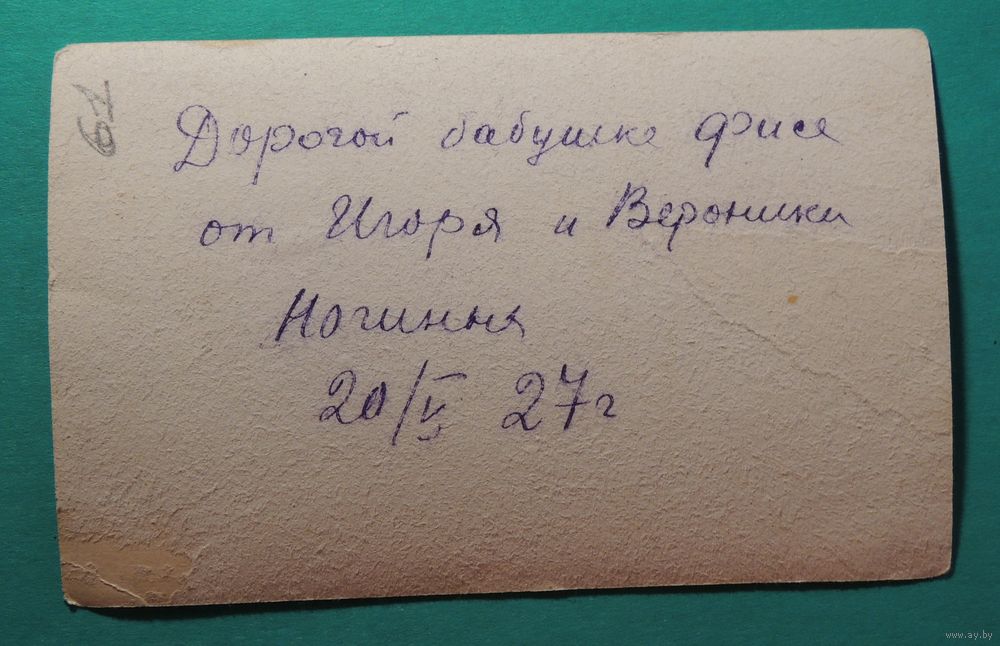 61
Дорогой бабушке Фисе
от Игоря и Вероники
20/V 27 г
www.ay.by